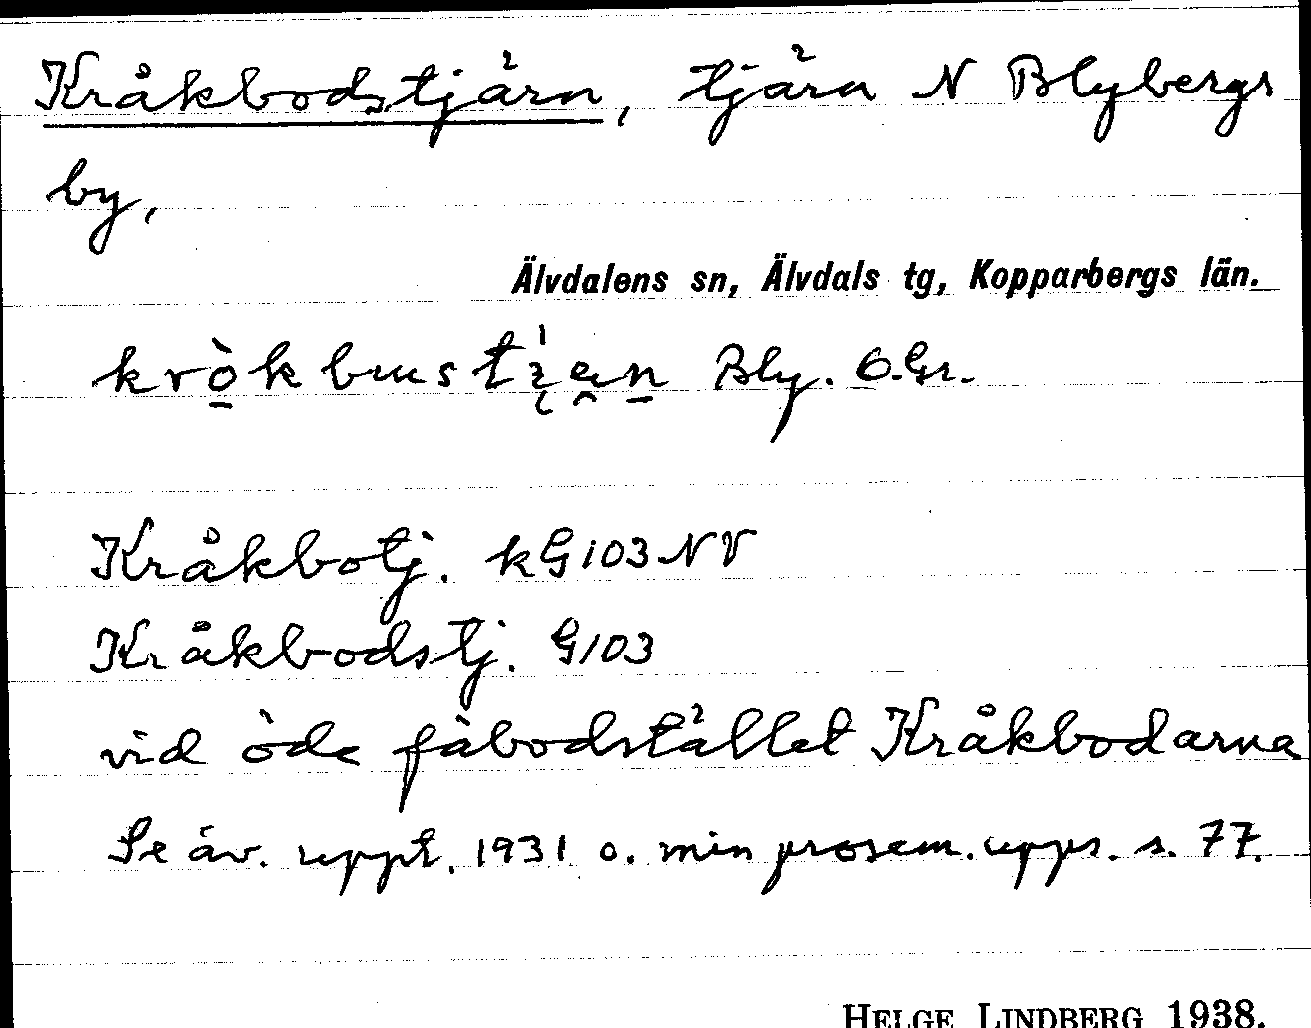 Kråkbodstjärn, tjärn N Blybergs
by,
Älvdalens sn, Älvdals tg, Kopparbergs län.
Bly. O.Gr.
Kråkbotj. kG103NV
Kråkbodstj. G103
vid öde fäbodstället Kråkbodarna
Se äv. uppt. 1931 o. min prosem. upps. s. 77.
HELGE LINDBERG 1938.